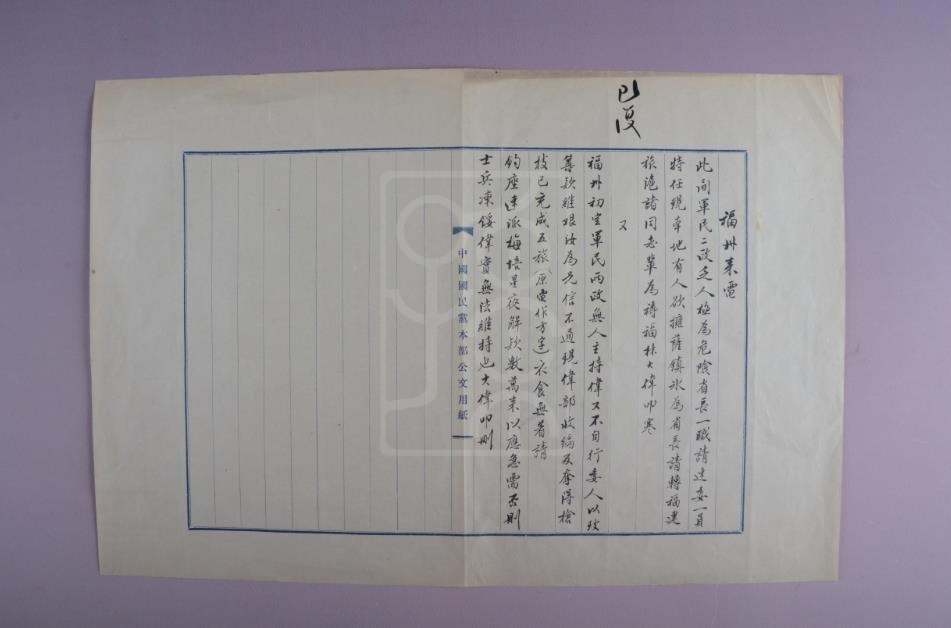 已復
福州來電
此間軍民二政乏人極為危險省長一職請速委一員
特任現本地有人欲擁薩鎮冰為省長請轉福建
旅滬諸同志輩為禱福林大偉叩寒
又
福州初定軍民兩政無人主持偉又不自行委人以致
籌款維艱汝為兄信不過現偉部收編及奪得槍
枝已完成五旅（原電作方字）衣食無著請
鈞座速派梅培星夜解款數萬來以應急需否則
士兵凍餒偉實無法維持也大偉叩刪
中國國民黨本部公文用紙